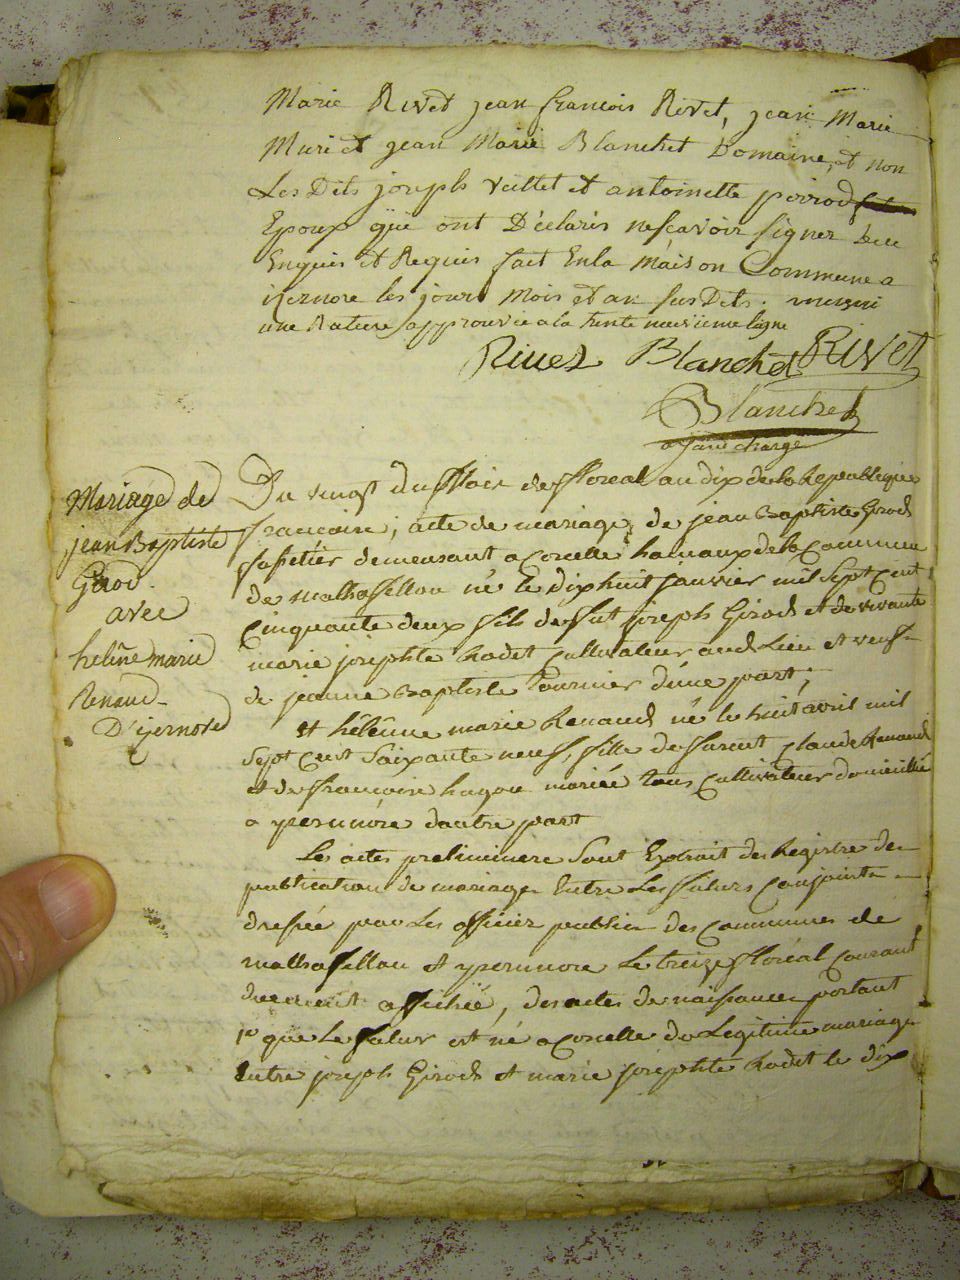 Marie Rivet jean francois Rivet, jean Marie
Muri et jean Marie Blanchet Domaine, et non
Les Dits joseph Vuillet et antoinette poirod
Epoux qui ont Déclarés nescavoir signer deu
Enquis et Requis fait Enla Maison Commune a
izernore les jour Mois et an susDits.
une Rature approuvée a la trente neuvieme ligne
Rivet Blanchet Rivet
Blanchet
Mariage de
jean Baptiste
Girod
avec
heline marie
Renaud
D'izernore
Du vingt du Mois de floreal an dix de la Republique
francoise, acte de mariage de jean Baptiste Girod
demeurant a Corcelle hamaux de la Commune
de né le dixhuit janvier mil Sept Cent
Cinquante deux fils de fut joseph Girod et de vivante
marie josephte Rodet Cultivateur audit Lieu et veuf
de jeanne Baptiste Tournier d'une part,
et hélenne marie Renaud né le huit avril mil
Sept Cent Soixante neuf, fille de furent Claude Renaud
et de francoise mariée tous Cultivateur domicillié
a ysernore dautre part
Les actes preliminere Sont Extrait des Registre de
publication de mariage Entre Les futurs Conjoints
dressée par Les officier public des Communes de
et ysernore Le treize floréal Courant
duement affichée, des actes de naissance portant
1º que Le futur est né a Corcelle de Legitime mariage
Entre joseph Girod et marie josephte Rodet le dix